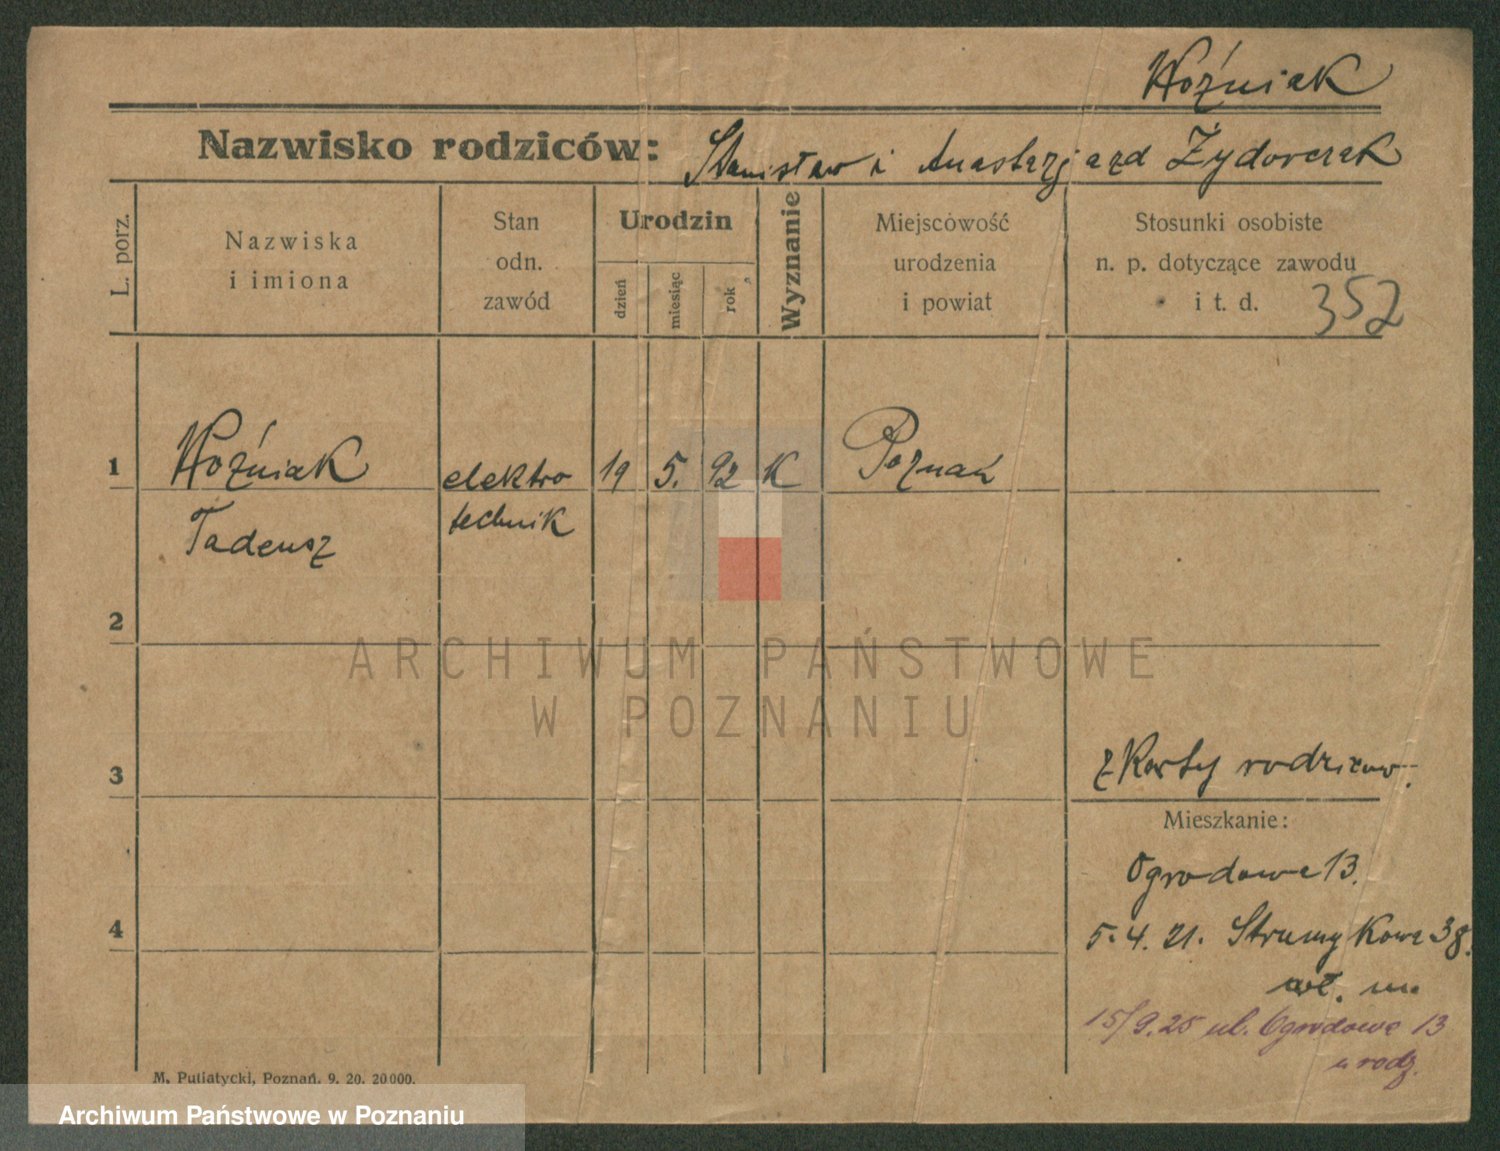 Woźniak
Nazwisko rodziców: Stanisław i Anastazja zd Żydorczak
L. porz.
Nazwiska
i imiona
Stan
odn.
zawód
Urodzin
dzień
miesiąc
rok
Wyznanie
Miejscowość
urodzenia
i powiat
Stosunki osobiste
n. p. dotyczące zawodu
i t. d.
352
1 Woźniak elektro 19 5. 92 K Poznań
Tadeusz technik
2
3
z Karty rodziców.
Mieszkanie:
Ogrodowa 13.
4
5.4.21. Strumykowa 38.
wł. m.
15/9.25 ul. Ogrodowa 13
u rodz.
M. Putiatycki, Poznań. 9. 20. 20000.
ARCHIWUM PAŃSTWOWE
W POZNANIU
Archiwum Państwowe w Poznaniu